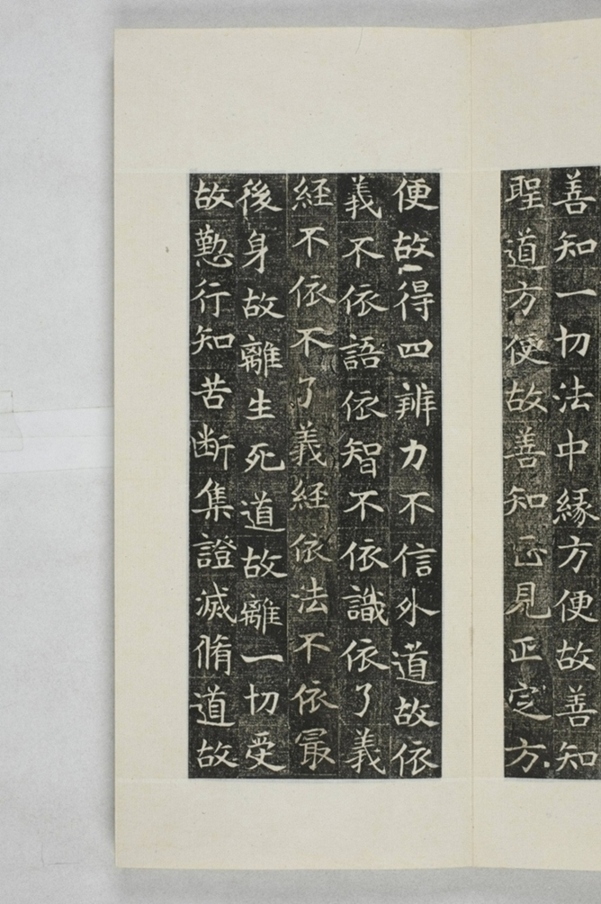 善知一切法中緣方便故善知
聖道方便故善知正見正定方
便故得四辨力不信外道故依
義不依語依智不依識依了義
經不依不了義經依法不依㝡
後身故離生死道故離一切受
故懃行知苦断集證滅脩道故